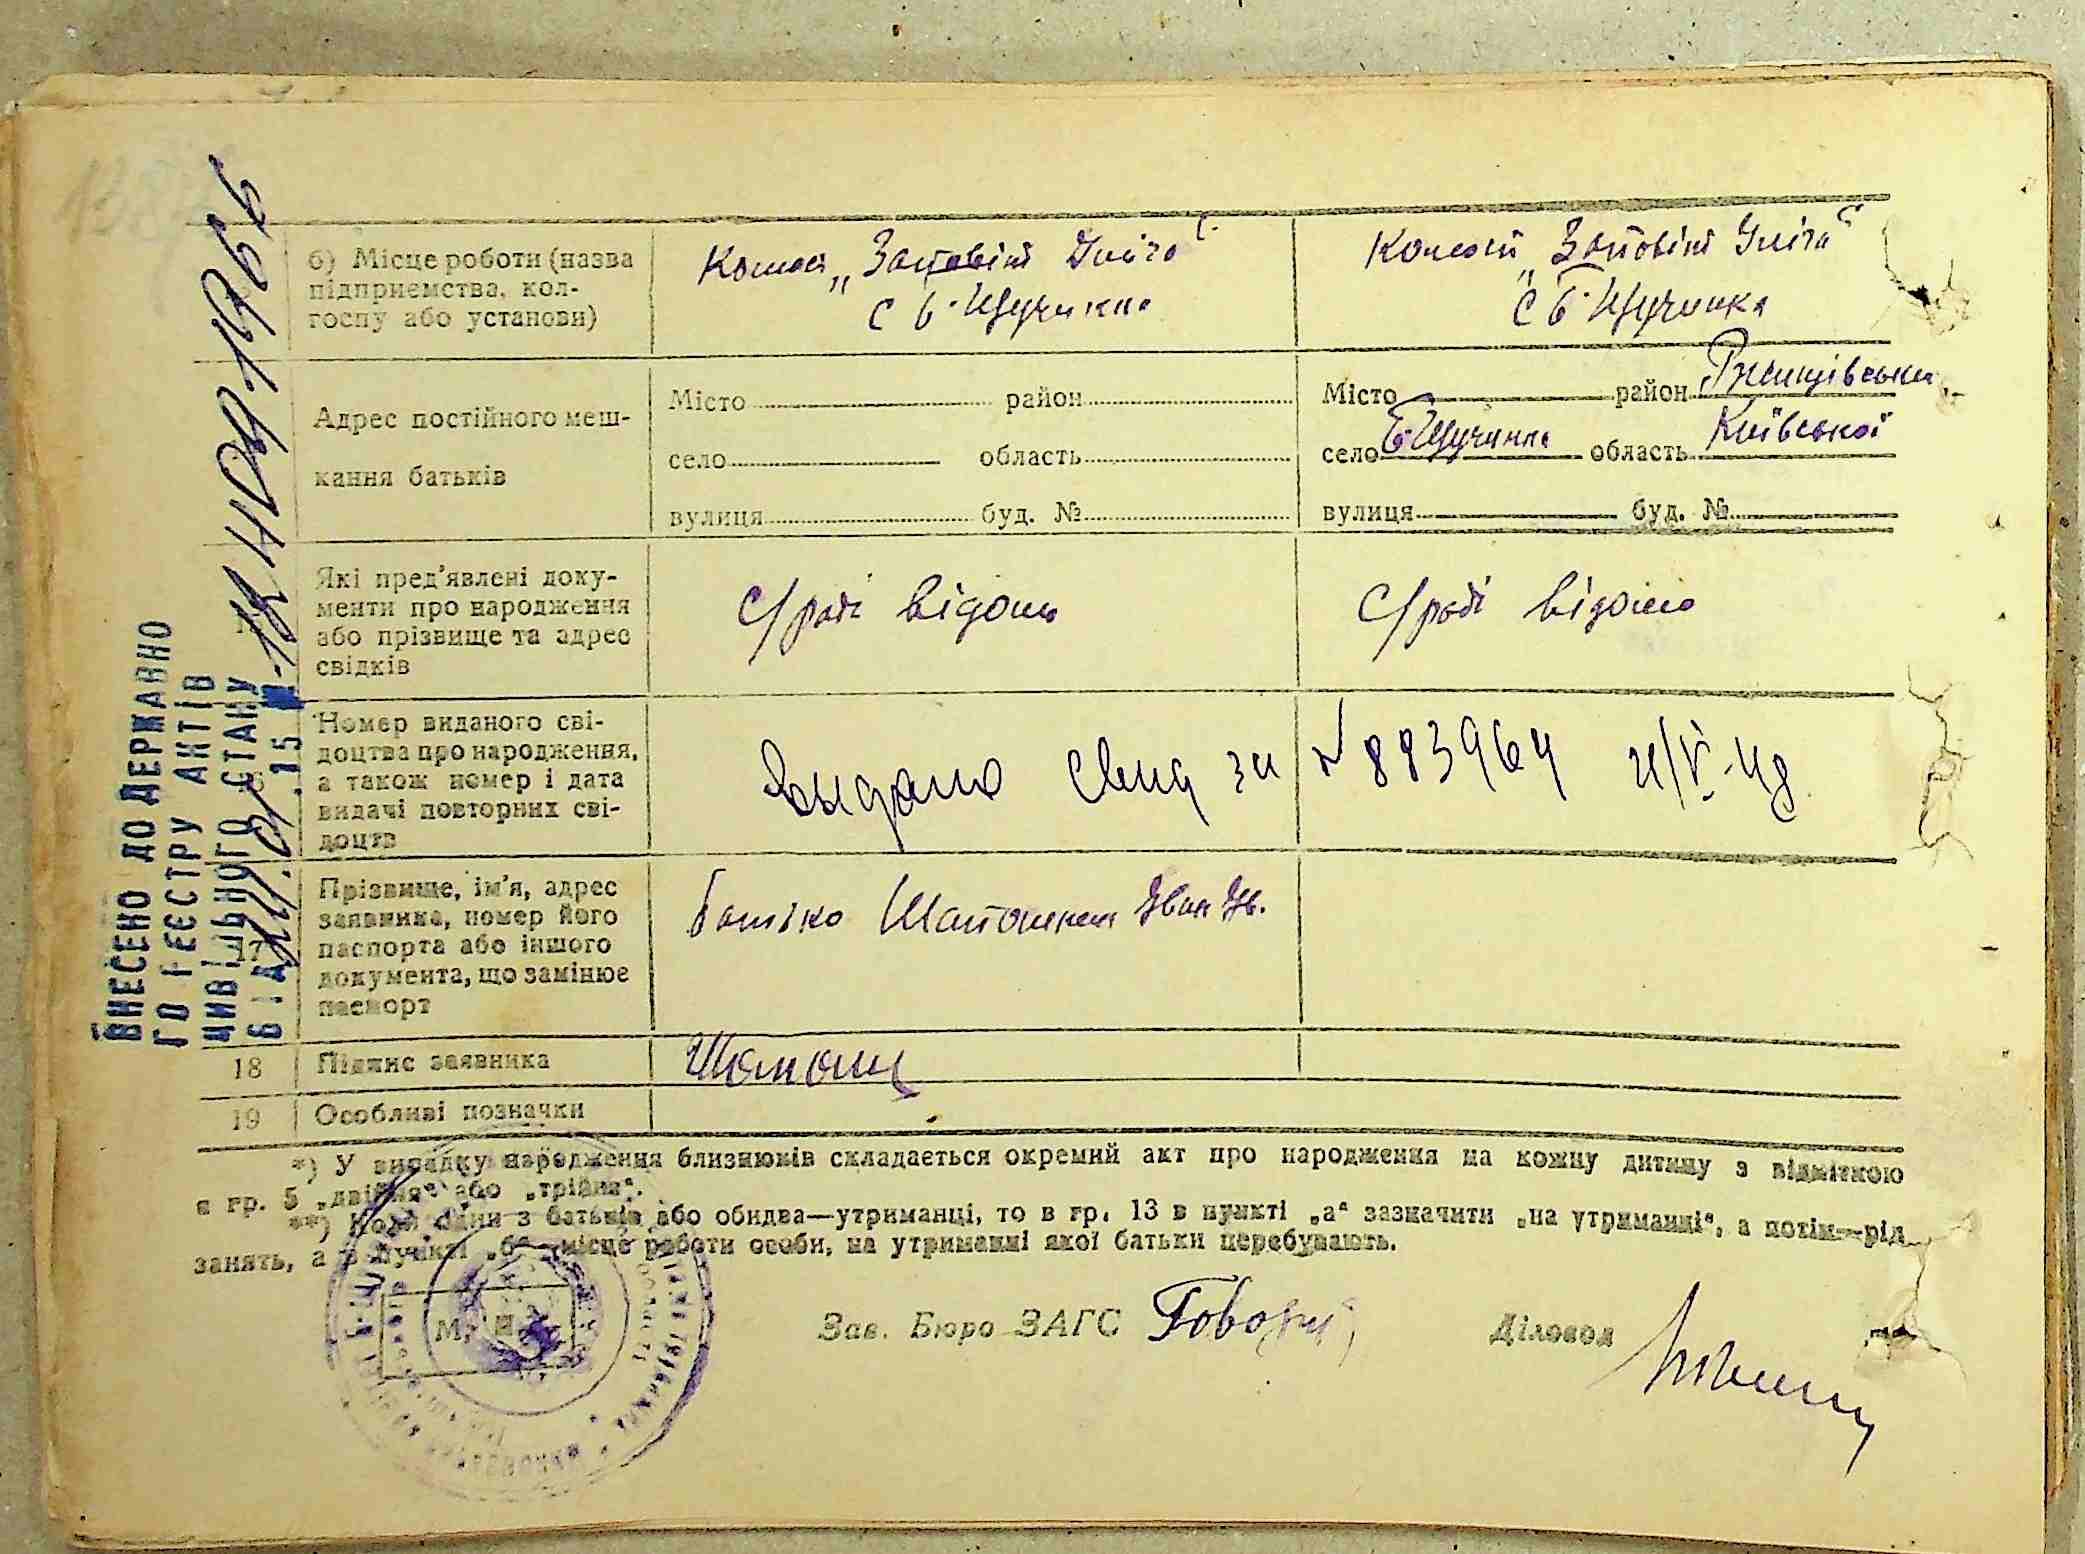 б) Місце роботи (назва
підприємства, кол-
госпу або установи)
Колгосп „Заповіт Ілліча“
с Б-Щучинка
Колгосп „Заповіт Ілліча“
с Б-Щучинка
Адрес постійного меш-
кання батьків
Місто район
село область
вулиця буд. №
Місто район Ржищівський
село Б-Щучинка область Київської
вулиця буд. №
Які пред'явлені доку-
менти про народження
або прізвище та адрес
свідків
С/раді відомо
С/раді відомо
Номер виданого сві-
доцтва про народження,
а також номер і дата
видачі повторних сві-
доцтв
Выдано Свид за № 883964
17
Прізвище, ім'я, адрес
заявника, номер його
паспорта або іншого
документа, що замінює
паспорт
Батько Іван Ів.
18 Підпис заявника
19 Особливі позначки
*) У випадку народження близнюків складається окремий акт про народження на кожну дитину з відміткою
в гр. 5 „двійня“ або „трійня“.
**) Коли один з батьків або обидва—утриманці, то в гр. 13 в пункті „а“ зазначити „на утриманні“, а потім—рід
занять, а в пункті „б“—місце роботи особи, на утриманні якої батьки перебувають.
М. П.
Зав. Бюро ЗАГС
Діловод
ВНЕСЕНО ДО ДЕРЖАВНО
ГО РЕЄСТРУ АКТІВ
ЦИВІЛЬНОГО СТАНУ
ВІД